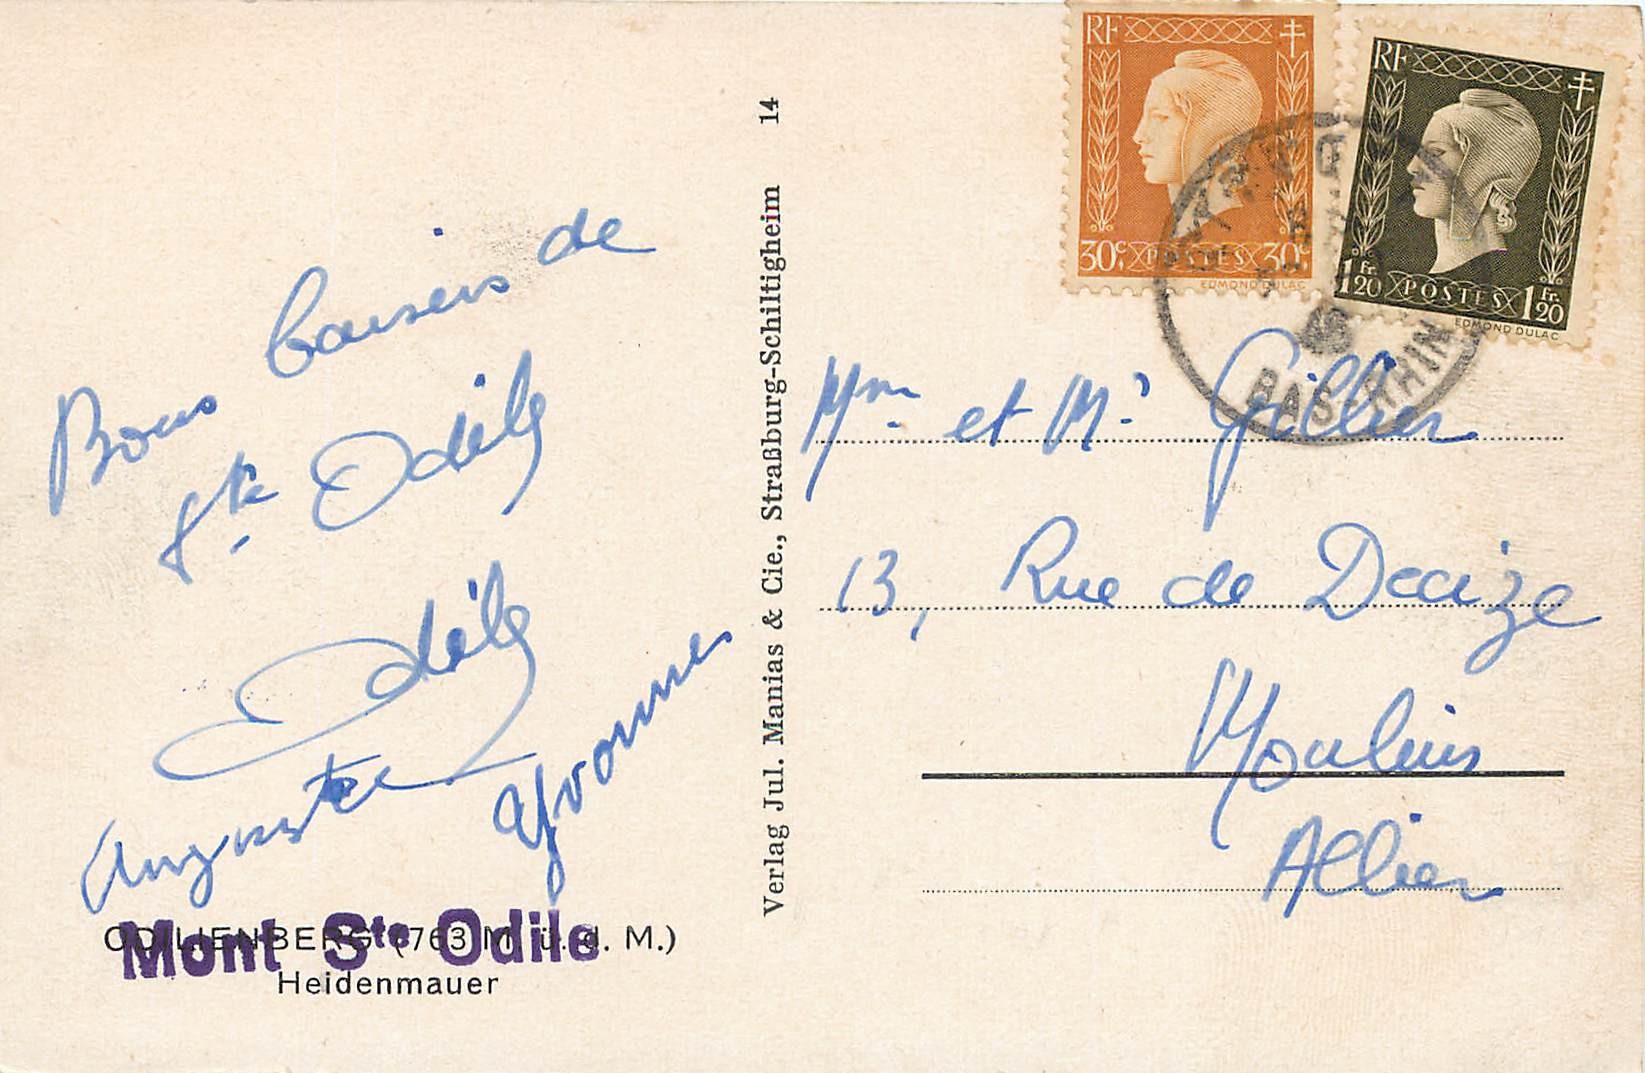 Bons baisers de
Ste Odile
Odile
Auguste
Yvonne
ODILIENBERG (763 M. ü. d. M.)
Mont Ste Odile
Heidenmauer
Verlag Jul. Manias & Cie., Straßburg-Schiltigheim 14
RF
30c POSTES 30c
EDMOND DULAC
RF
1fr.20 POSTES 1fr.20
EDMOND DULAC
46
BAS-RHIN
Mme et Mr Gillier
13, Rue de Decize
Moulins
Allier